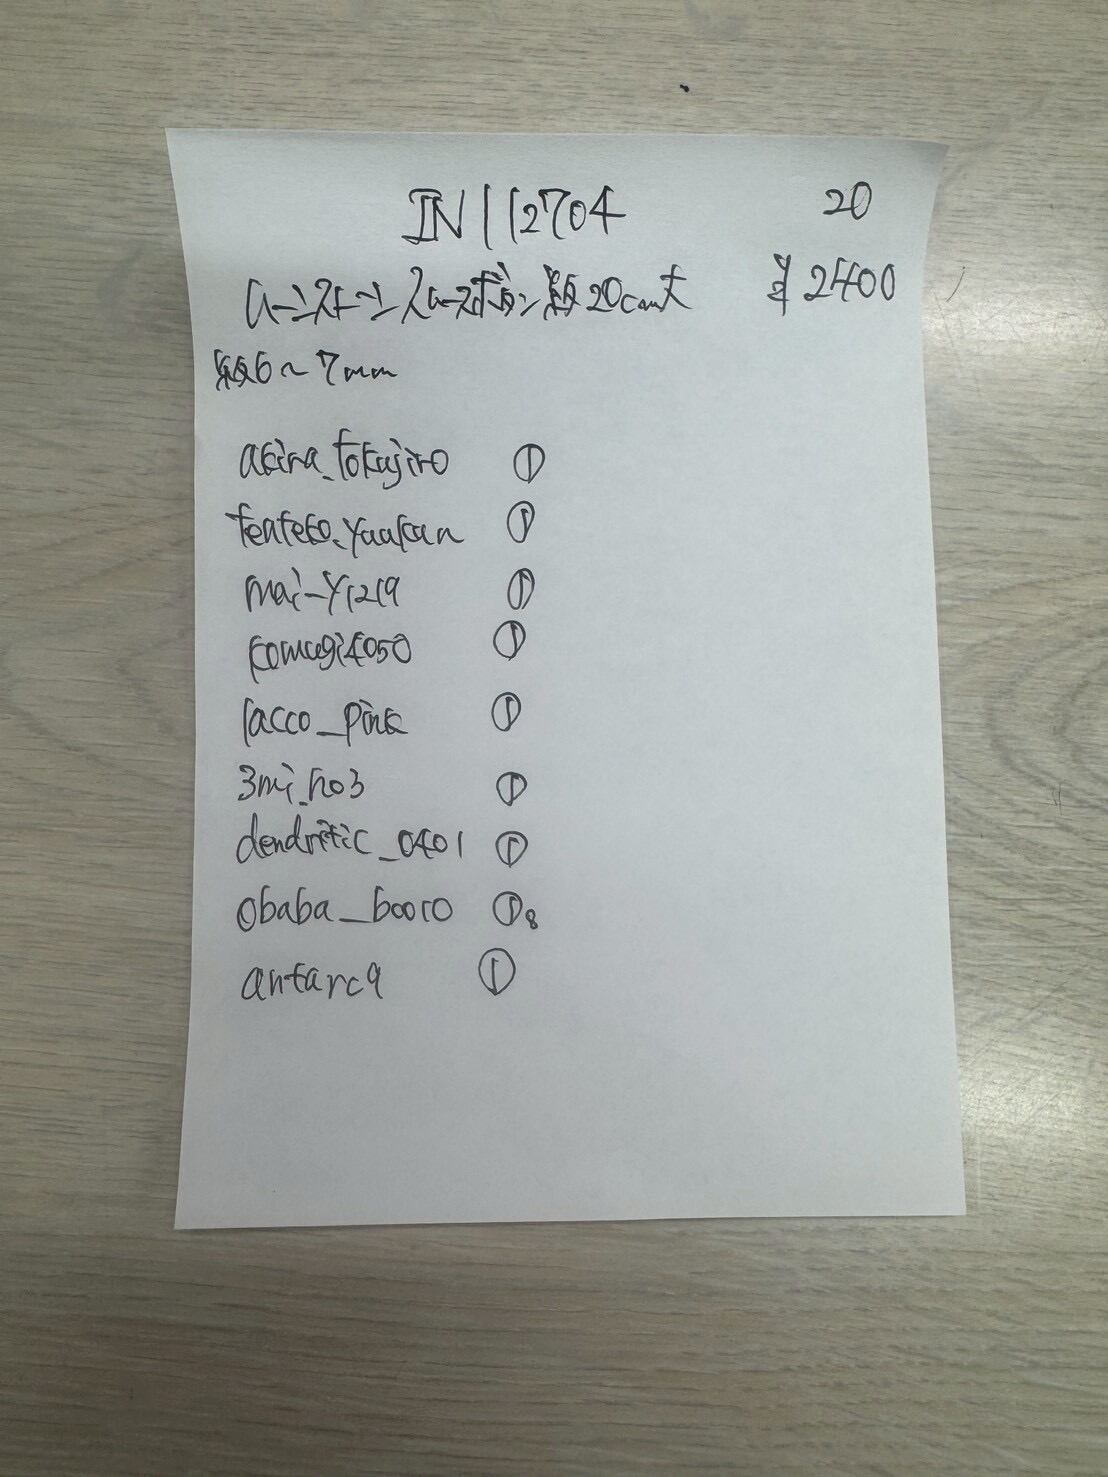 IN112704 20
ムーンストーン スムースボタン級20cm大 ¥2400
級6~7mm
akira_tokujiro ①
tenteko_yuukan ①
mai_y1219 ①
komugi4050 ①
lacco_pink ①
3mi_ho3 ①
dendritic_0401 ①
obaba_booro ①8
antarcq ①